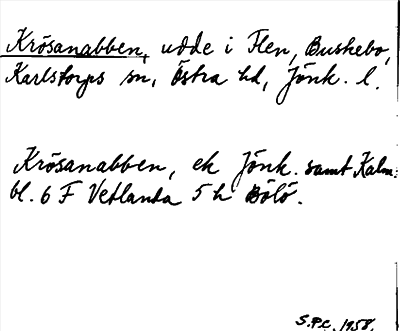 Krösanabben, udde i Flen, Buskebo,
Karlstorps sn, Östra hd, Jönk. l.
Krösanabben, ek Jönk. samt Kalm.
bl. 6 F Vetlanda 5 h Bölö.
S.P.C. 1958.